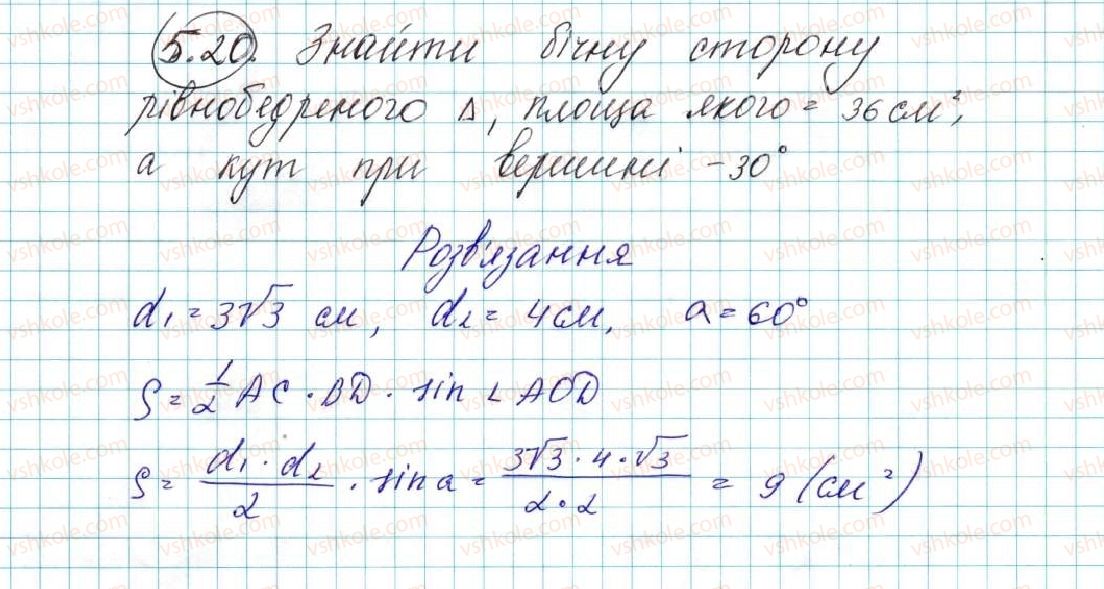 5.20. Знайти бічну сторону
рівнобедреного Δ, площа якого = 36 см²,
а кут при вершині - 30°
Розв'язання
d₁ = 3√3 см, d₂ = 4 см, a = 60°
S = 1/2 AC · BD · sin ∠ AOD
S = (d₁ · d₂)/2 · sin a = (3√3 · 4 · √3)/(2 · 2) = 9 (см²)